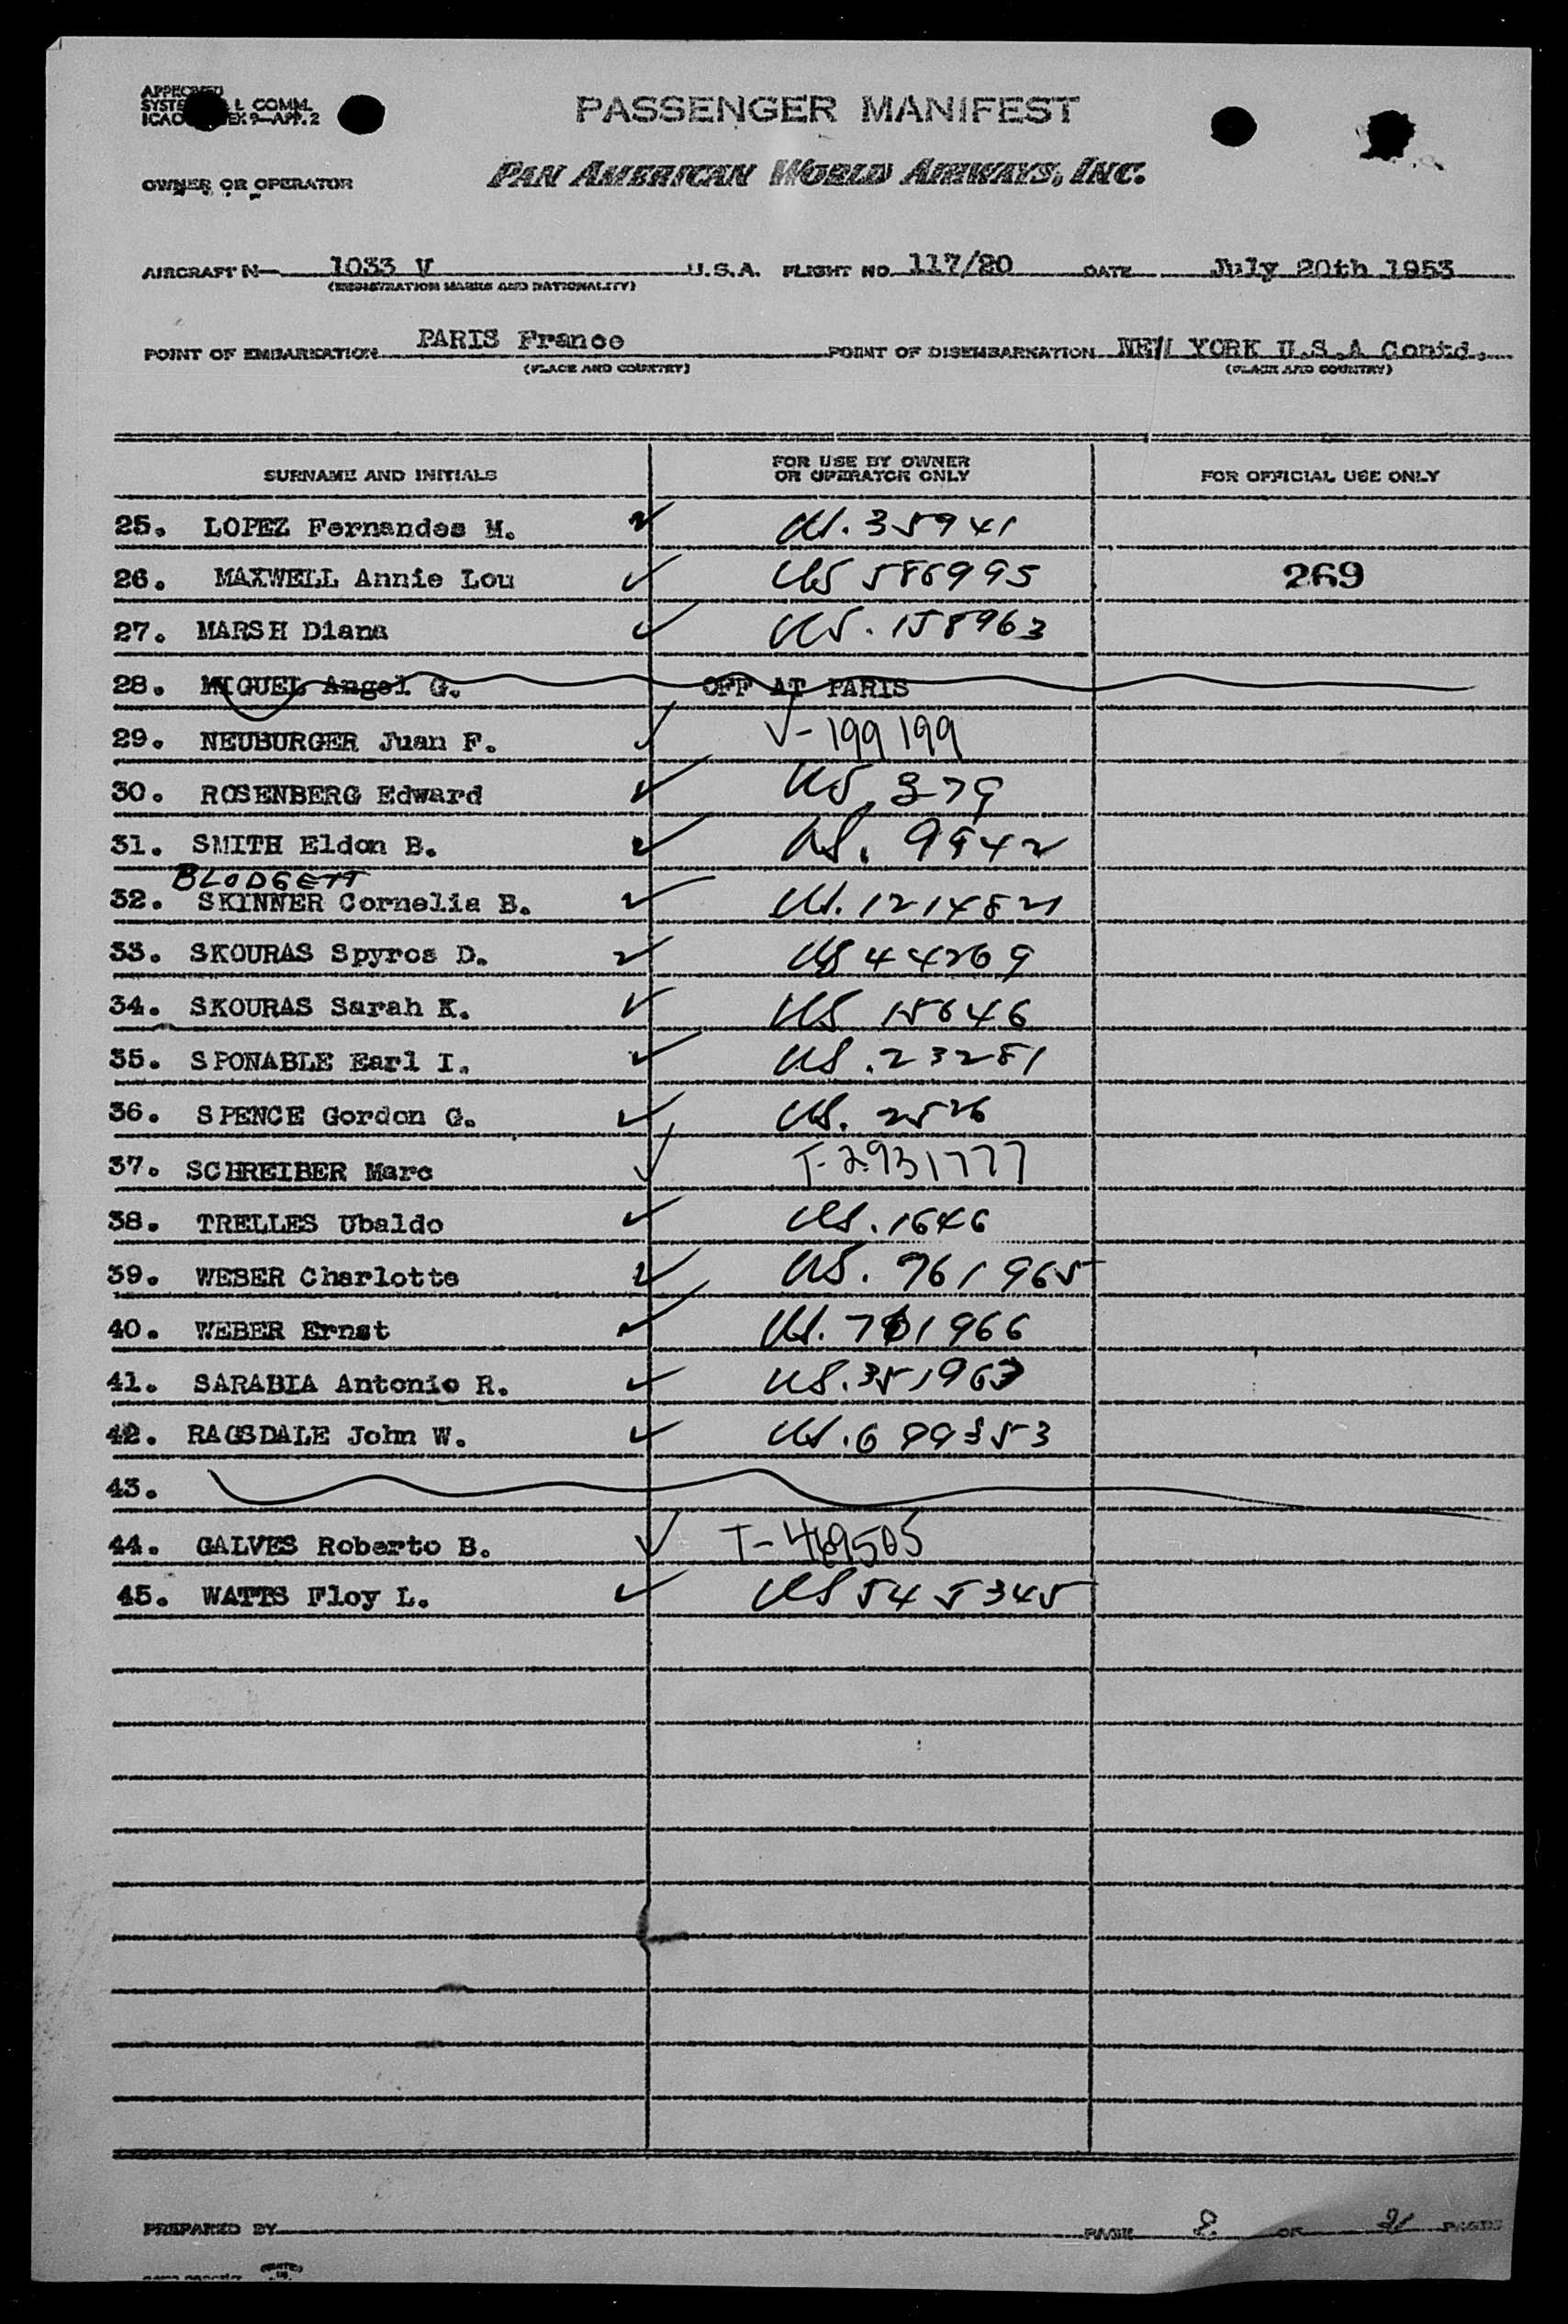 APPROVED
SYSTE L COMM.
ICAO EX 9—APP. 2
PASSENGER MANIFEST
OWNER OR OPERATOR
PAN AMERICAN WORLD AIRWAYS, INC.
AIRCRAFT N— 1033 V U.S.A. FLIGHT NO. 117/20 DATE July 20th 1953
(REGISTRATION MARKS AND NATIONALITY)
POINT OF EMBARKATION PARIS France POINT OF DISEMBARKATION NEW YORK U.S.A Contd.
(PLACE AND COUNTRY) (PLACE AND COUNTRY)
SURNAME AND INITIALS FOR USE BY OWNER OR OPERATOR ONLY FOR OFFICIAL USE ONLY
25. LOPEZ Fernandes M. US. 35941
26. MAXWELL Annie Lou US 586995 269
27. MARSH Diana US. 158963
28. MIGUEL Angel G. OFF AT PARIS
29. NEUBURGER Juan F. V-199199
30. ROSENBERG Edward US 379
31. SMITH Eldon B. US. 9942
BLODGETT
32. SKINNER Cornelia B. US. 121482
33. SKOURAS Spyros D. US 44269
34. SKOURAS Sarah K. US 15646
35. SPONABLE Earl I. US. 23281
36. SPENCE Gordon G. US. 2526
37. SCHREIBER Marc T-2931777
38. TRELLES Ubaldo US. 1646
39. WEBER Charlotte US. 761965
40. WEBER Ernst US. 761966
41. SARABIA Antonio R. US. 351963
42. RAGSDALE John W. US. 699353
43.
44. GALVES Roberto B. T-469505
45. WATTS Floy L. US 545345
PREPARED BY PAGE 2 OF PAGES